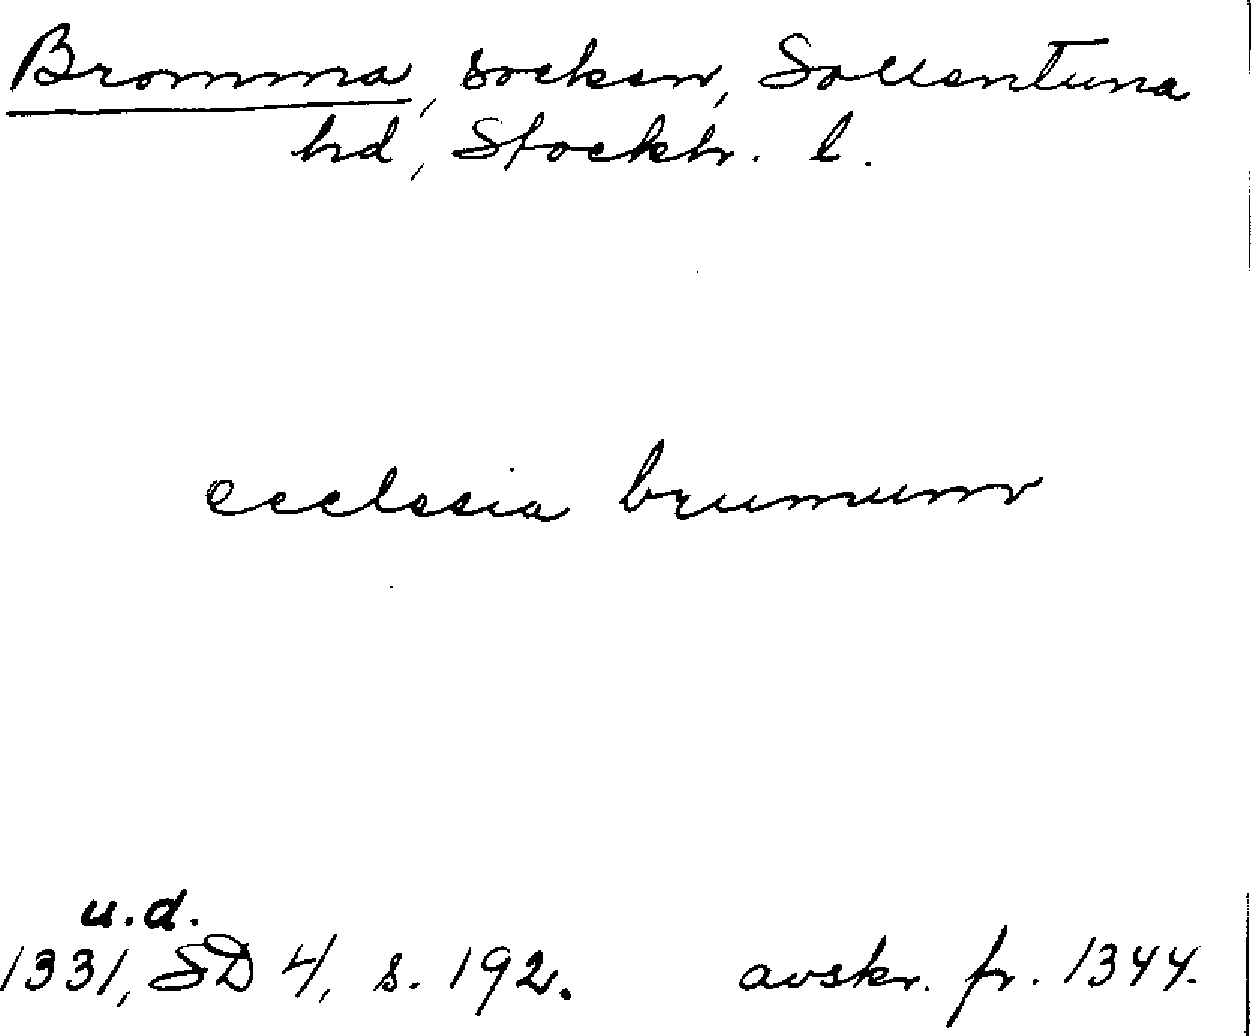 Bromma, socken, Sollentuna
hd, Stockh. l.
ecclesia brumum
u.d.
1331, SD 4, s. 192. avskr. fr. 1344.